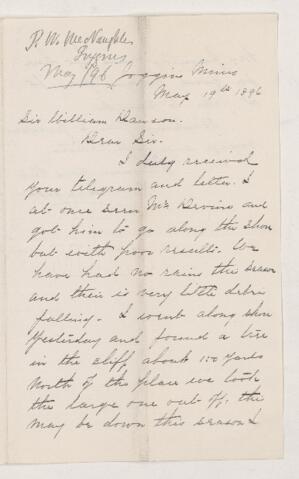 P. W. McNaughton
May /96
Joggins Mines
May 19th 1896
Sir William Dawson.
Dear Sir.
I duly received
your telegram and letter. I
at once seen Mr
got him to go along the shore
but with poor result. We
have had no rains this season
and their is very little debre
falling. I went along shore
yesterday and found a tree
in the cliff about 150 yards
North of the place we took
the large one out off. this
may be down this season I